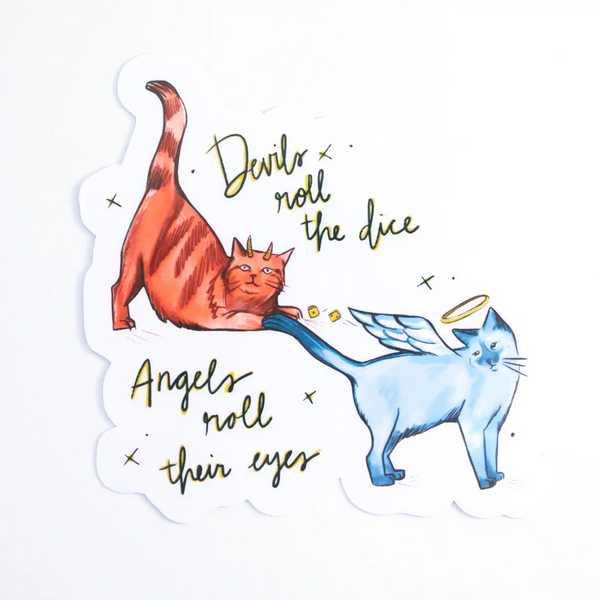 Devils
roll
the dice
Angels
roll
their eyes